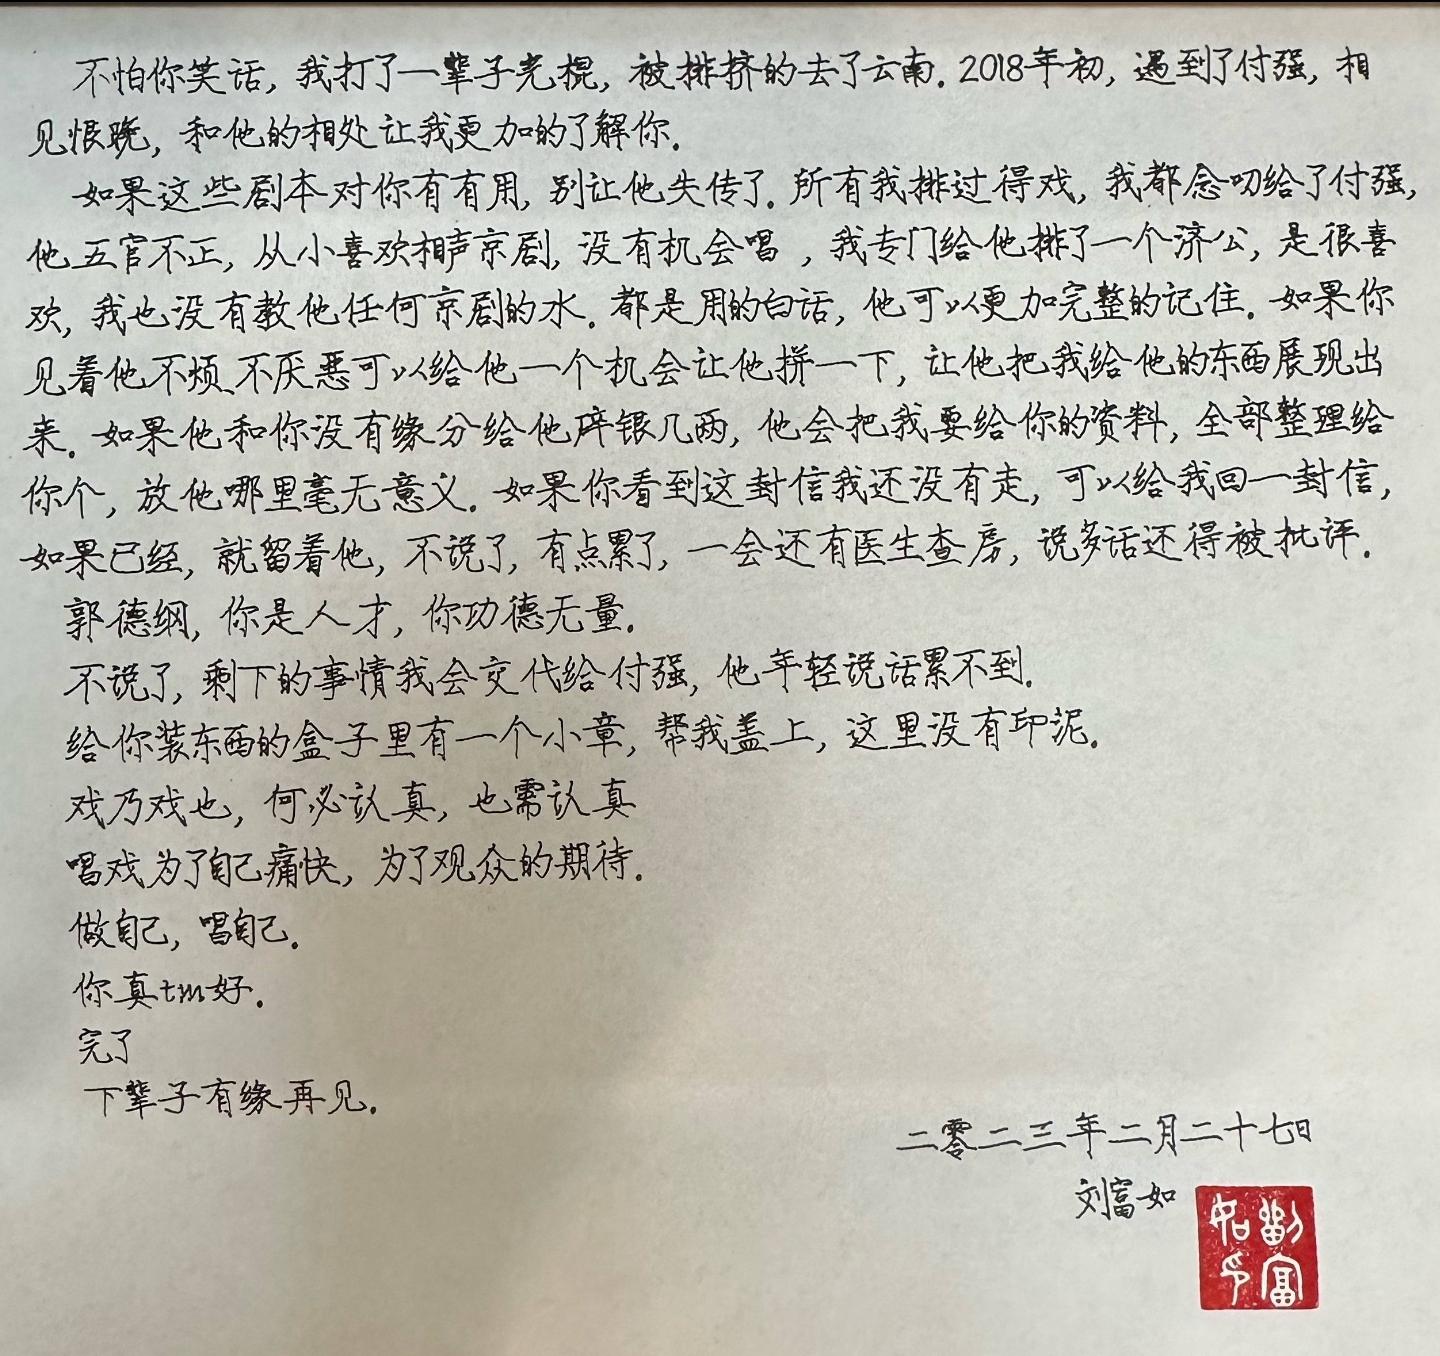 不怕你笑话，我打了一辈子光棍，被排挤的去了云南．2018年初，遇到了付强，相
见恨晚，和他的相处让我更加的了解你．
如果这些剧本对你有有用，别让他失传了．所有我排过得戏，我都念叨给了付强，
他五官不正，从小喜欢相声京剧，没有机会唱，我专门给他排了一个济公，是很喜
欢，我也没有教他任何京剧的水．都是用的白话，他可以更加完整的记住．如果你
见着他不烦、不厌恶可以给他一个机会让他拼一下，让他把我给他的东西展现出
来．如果他和你没有缘分给他碎银几两，他会把我要给你的资料，全部整理给
你个，放他哪里毫无意义．如果你看到这封信我还没有走，可以给我回一封信，
如果已经，就留着他，不说了，有点累了，一会还有医生查房，说多话还得被批评．
郭德纲，你是人才，你功德无量．
不说了，剩下的事情我会交代给付强，他年轻说话累不到．
给你装东西的盒子里有一个小章，帮我盖上，这里没有印泥．
戏乃戏也，何必认真，也需认真
唱戏为了自己痛快，为了观众的期待．
做自己，唱自己．
你真tm好．
完了
下辈子有缘再见．
二零二三年二月二十七日
刘富如
劉富如印